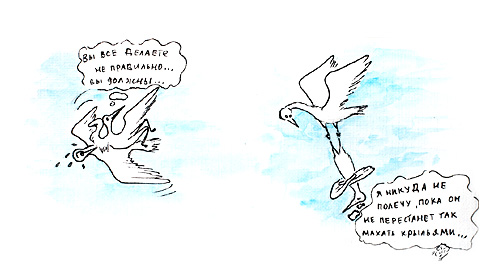 ВЫ ВСЕ ДЕЛАЕТЕ
НЕ ПРАВИЛЬНО...
ВЫ ДОЛЖНЫ...
Я НИКУДА НЕ
ПОЛЕЧУ, ПОКА ОН
НЕ ПЕРЕСТАНЕТ ТАК
МАХАТЬ КРЫЛЬЯМИ...